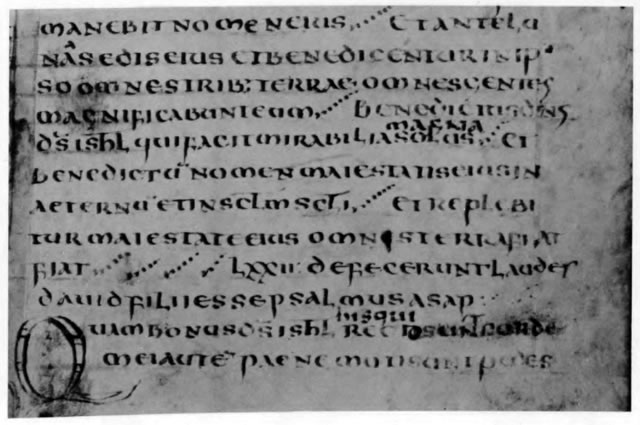 manebit nomen eius, et ante lu
nā sedis eius et benedicentur in ip
so omnes trib; terrae omnes gentes
magnificabunt eum, benedictus dn̄s
magna
ds̄ ishl qui facit mirabilia solus, et
benedictū nomen maiestatis eius in
aeternū et in sclm scli, et replebi
tur maiestate eius omnis terra fiat
fiat LXXII defecerunt laudes
dauid filii iesse psalmus asap
his qui
Quam bonus ds̄ ishl sunt corde
mei autē paene moti sunt pedes